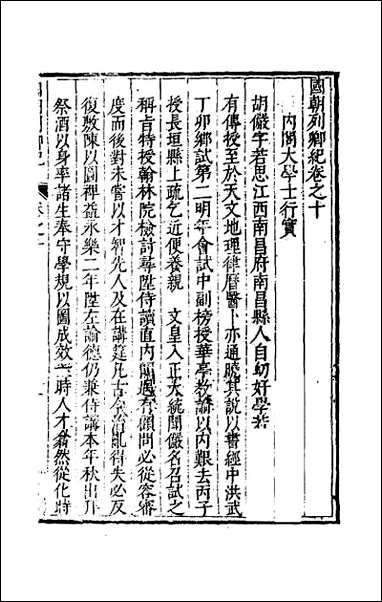 國朝列卿紀卷之十
内閣大學士行實
胡儼字若思江西南昌府南昌縣人自幼好學若
有傳授至於天文地理律曆醫卜亦通曉其說以書經中洪武
丁卯鄉試第二明年會試中副榜授華亭教諭以内艱去丙子
授長垣縣上疏乞近便養親 文皇入正大統聞儼名召試之
稱旨特授翰林院檢討尋陞侍讀直内閣遇有顧問必從容審
度而後對未嘗以才智先人及在講筵凡古今治亂得失必反
復敷陳以圖裨益永樂二年陞左諭德仍兼侍講本年秋出爲
祭酒以身率諸生奉守學規以圖成效一時人才翕然從化時